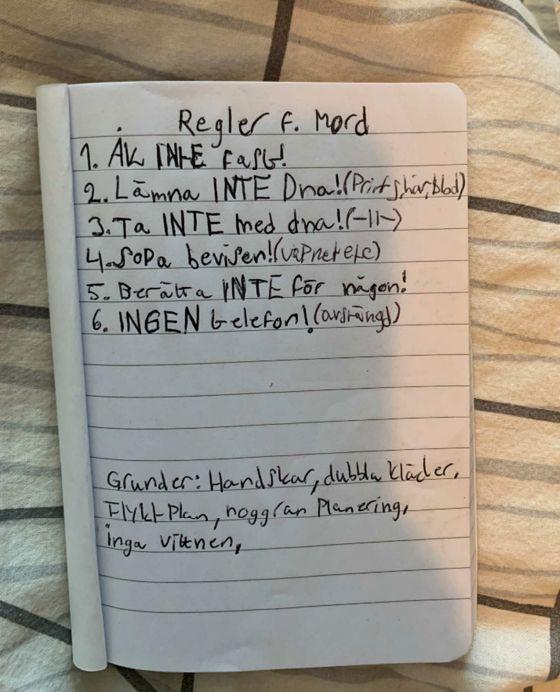 Regler f. Mord
1. Åk INTE fast!
2. Lämna INTE Dna!(Prints, hår, blod)
3. Ta INTE med dna!(-11-)
4. Sopa bevisen!(vapnet etc)
5. Berätta INTE för någon!
6. INGEN telefon!(avstängd)
Grunder: Handskar, dubbla kläder,
Flykt-Plan, noggran Planering,
inga vittnen,